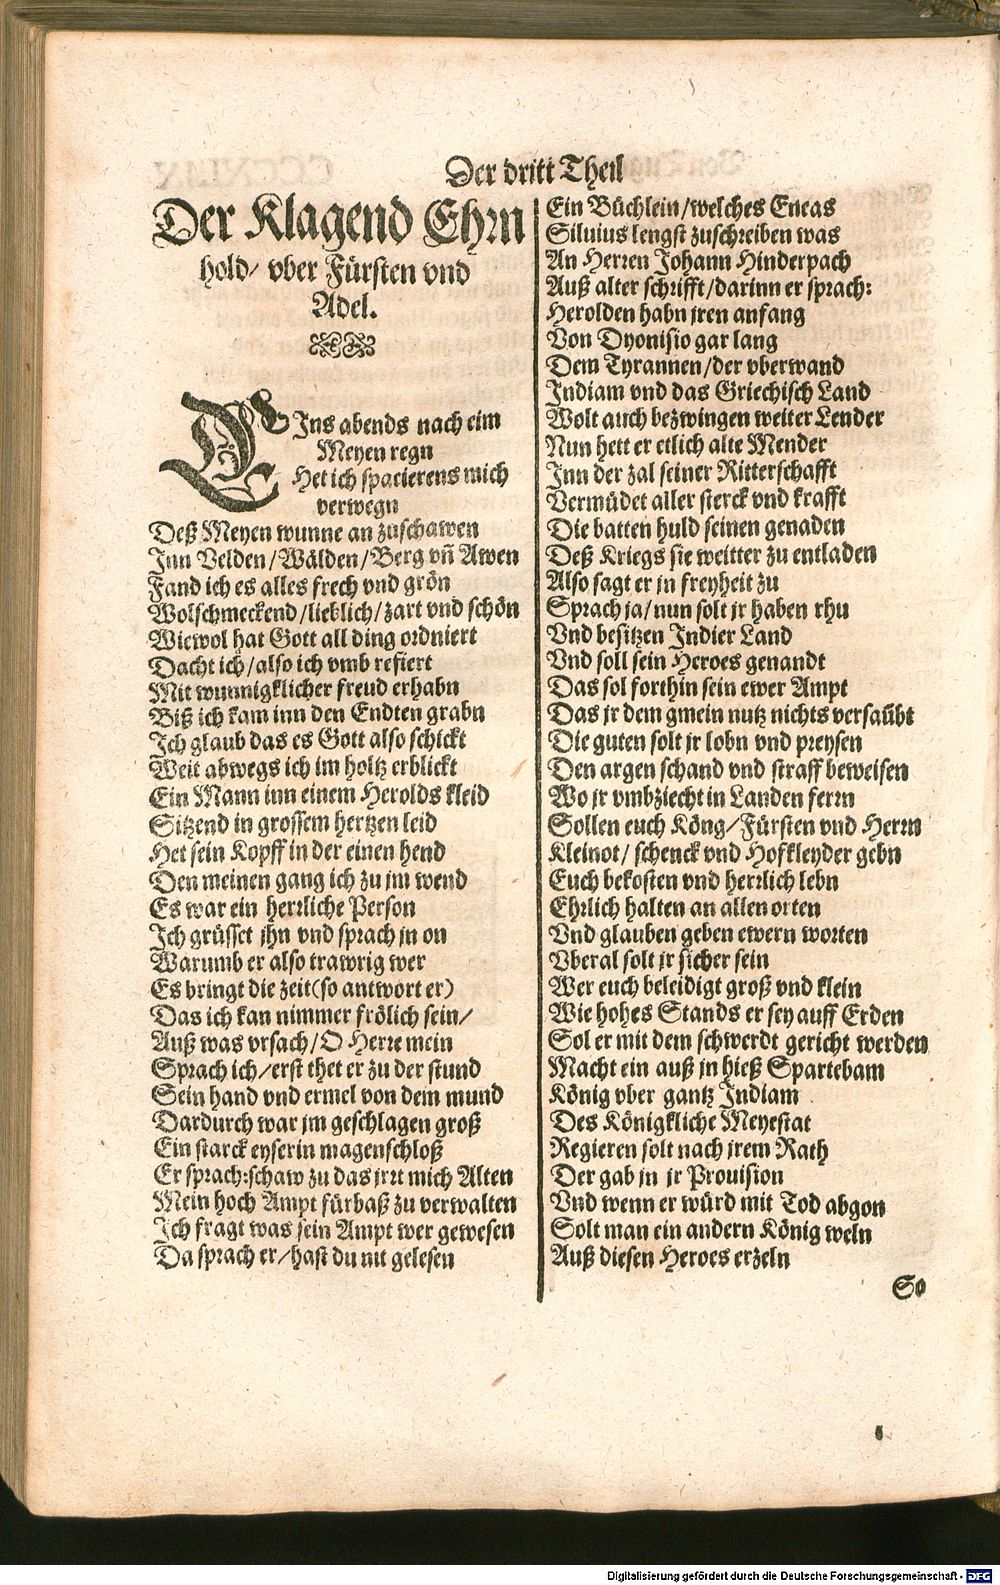 Der dritt Theil
Der Klagend Ehrn
hold/ vber Fürsten vnd
Adel.
EIns abends nach eim
Meyen regn
Het ich spacierens mich
verwegn
Deß Meyen wunne an zuschawen
Inn Velden/Wälden/Berg vñ Awen
Fand ich es alles frech vnd grön
Wolschmeckend/lieblich/zart vnd schön
Wiewol hat Gott all ding ordniert
Dacht ich/also ich vmb refiert
Mit wunnigklicher freud erhabn
Biß ich kam inn den Endten grabn
Ich glaub das es Gott also schickt
Weit abwegs ich im holtz erblickt
Ein Mann inn einem Herolds kleid
Sitzend in grossem hertzen leid
Het sein Kopff in der einen hend
Den meinen gang ich zu jm wend
Es war ein herrliche Person
Ich grüsset jhn vnd sprach jn on
Warumb er also trawrig wer
Es bringt die zeit(so antwort er)
Das ich kan nimmer frölich sein/
Auß was vrsach/O Herre mein
Sprach ich/erst thet er zu der stund
Sein hand vnd ermel von dem mund
Dardurch war jm geschlagen groß
Ein starck eyserin magenschloß
Er sprach:schaw zu das jrrt mich Alten
Mein hoch Ampt fürbaß zu verwalten
Ich fragt was sein Ampt wer gewesen
Da sprach er/hast du nit gelesen
Ein Büchlein/welches Eneas
Siluius lengst zuschreiben was
An Herren Johann Hinderpach
Auß alter schrifft/darinn er sprach:
Herolden habn jren anfang
Von Dyonisio gar lang
Dem Tyrannen/der vberwand
Indiam vnd das Griechisch Land
Wolt auch bezwingen weiter Lender
Nun hett er etlich alte Mender
Inn der zal seiner Ritterschafft
Vermüdet aller sterck vnd krafft
Die batten huld seinen genaden
Deß Kriegs sie weitter zu entladen
Also sagt er jn freyheit zu
Sprach ja/nun solt jr haben rhu
Vnd besitzen Indier Land
Vnd soll sein Heroes genandt
Das sol forthin sein ewer Ampt
Das jr dem gmein nutz nichts versaübt
Die guten solt jr lobn vnd preysen
Den argen schand vnd straff beweisen
Wo jr vmbziecht in Landen ferrn
Sollen euch Köng/Fürsten vnd Herrn
Kleinot/ schenck vnd Hofkleyder gebn
Euch bekosten vnd herrlich lebn
Ehrlich halten an allen orten
Vnd glauben geben ewern worten
Vberal solt jr sicher sein
Wer euch beleidigt groß vnd klein
Wie hohes Stands er sey auff Erden
Sol er mit dem schwerdt gericht werden
Macht ein auß jn hieß Spartebam
König vber gantz Indiam
Des Königkliche Meyestat
Regieren solt nach jrem Rath
Der gab jn jr Prouision
Vnd wenn er würd mit Tod abgon
Solt man ein andern König weln
Auß diesen Heroes erzeln
So
Digitalisierung gefördert durch die Deutsche Forschungsgemeinschaft - DFG